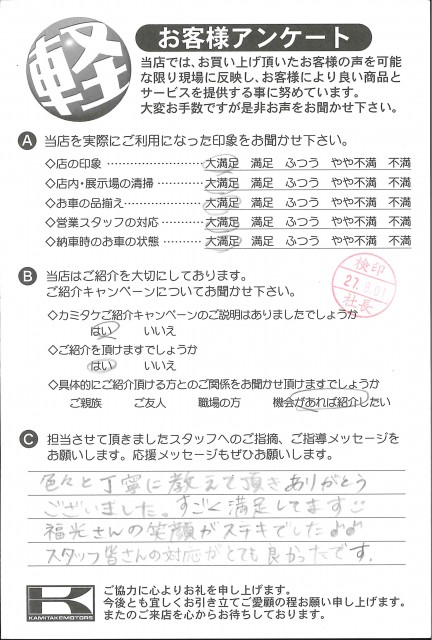 軽
お客様アンケート
当店では、お買い上げ頂いたお客様の声を可能
な限り現場に反映し、お客様により良い商品と
サービスを提供する事に努めています。
大変お手数ですが是非お声をお聞かせ下さい。
A 当店を実際にご利用になった印象をお聞かせ下さい。
◇店の印象 ………………… 大満足 満足 ふつう やや不満 不満
◇店内・展示場の清掃 ……… 大満足 満足 ふつう やや不満 不満
◇お車の品揃え ……………… 大満足 満足 ふつう やや不満 不満
◇営業スタッフの対応 ……… 大満足 満足 ふつう やや不満 不満
◇納車時のお車の状態 ……… 大満足 満足 ふつう やや不満 不満
B 当店はご紹介を大切にしております。
ご紹介キャンペーンについてお聞かせ下さい。
検印
社長
◇カミタケご紹介キャンペーンのご説明はありましたでしょうか
はい いいえ
◇ご紹介を頂けますでしょうか
はい いいえ
◇具体的にご紹介頂ける方とのご関係をお聞かせ頂けますでしょうか
ご親族 ご友人 職場の方 機会があれば紹介したい
C 担当させて頂きましたスタッフへのご指摘、ご指導メッセージを
お願いします。応援メッセージもぜひお願いします。
色々と丁寧に教えて頂きありがとう
ございました。すごく満足してます
福光さんの笑顔がステキでした♪♪
スタッフ皆さんの対応がとても良かったです。
K
KAMITAKEMOTORS
ご協力に心よりお礼を申し上げます。
今後とも宜しくお引き立てご愛顧の程お願い申し上げます。
またのご来店を心からお待ちしております。